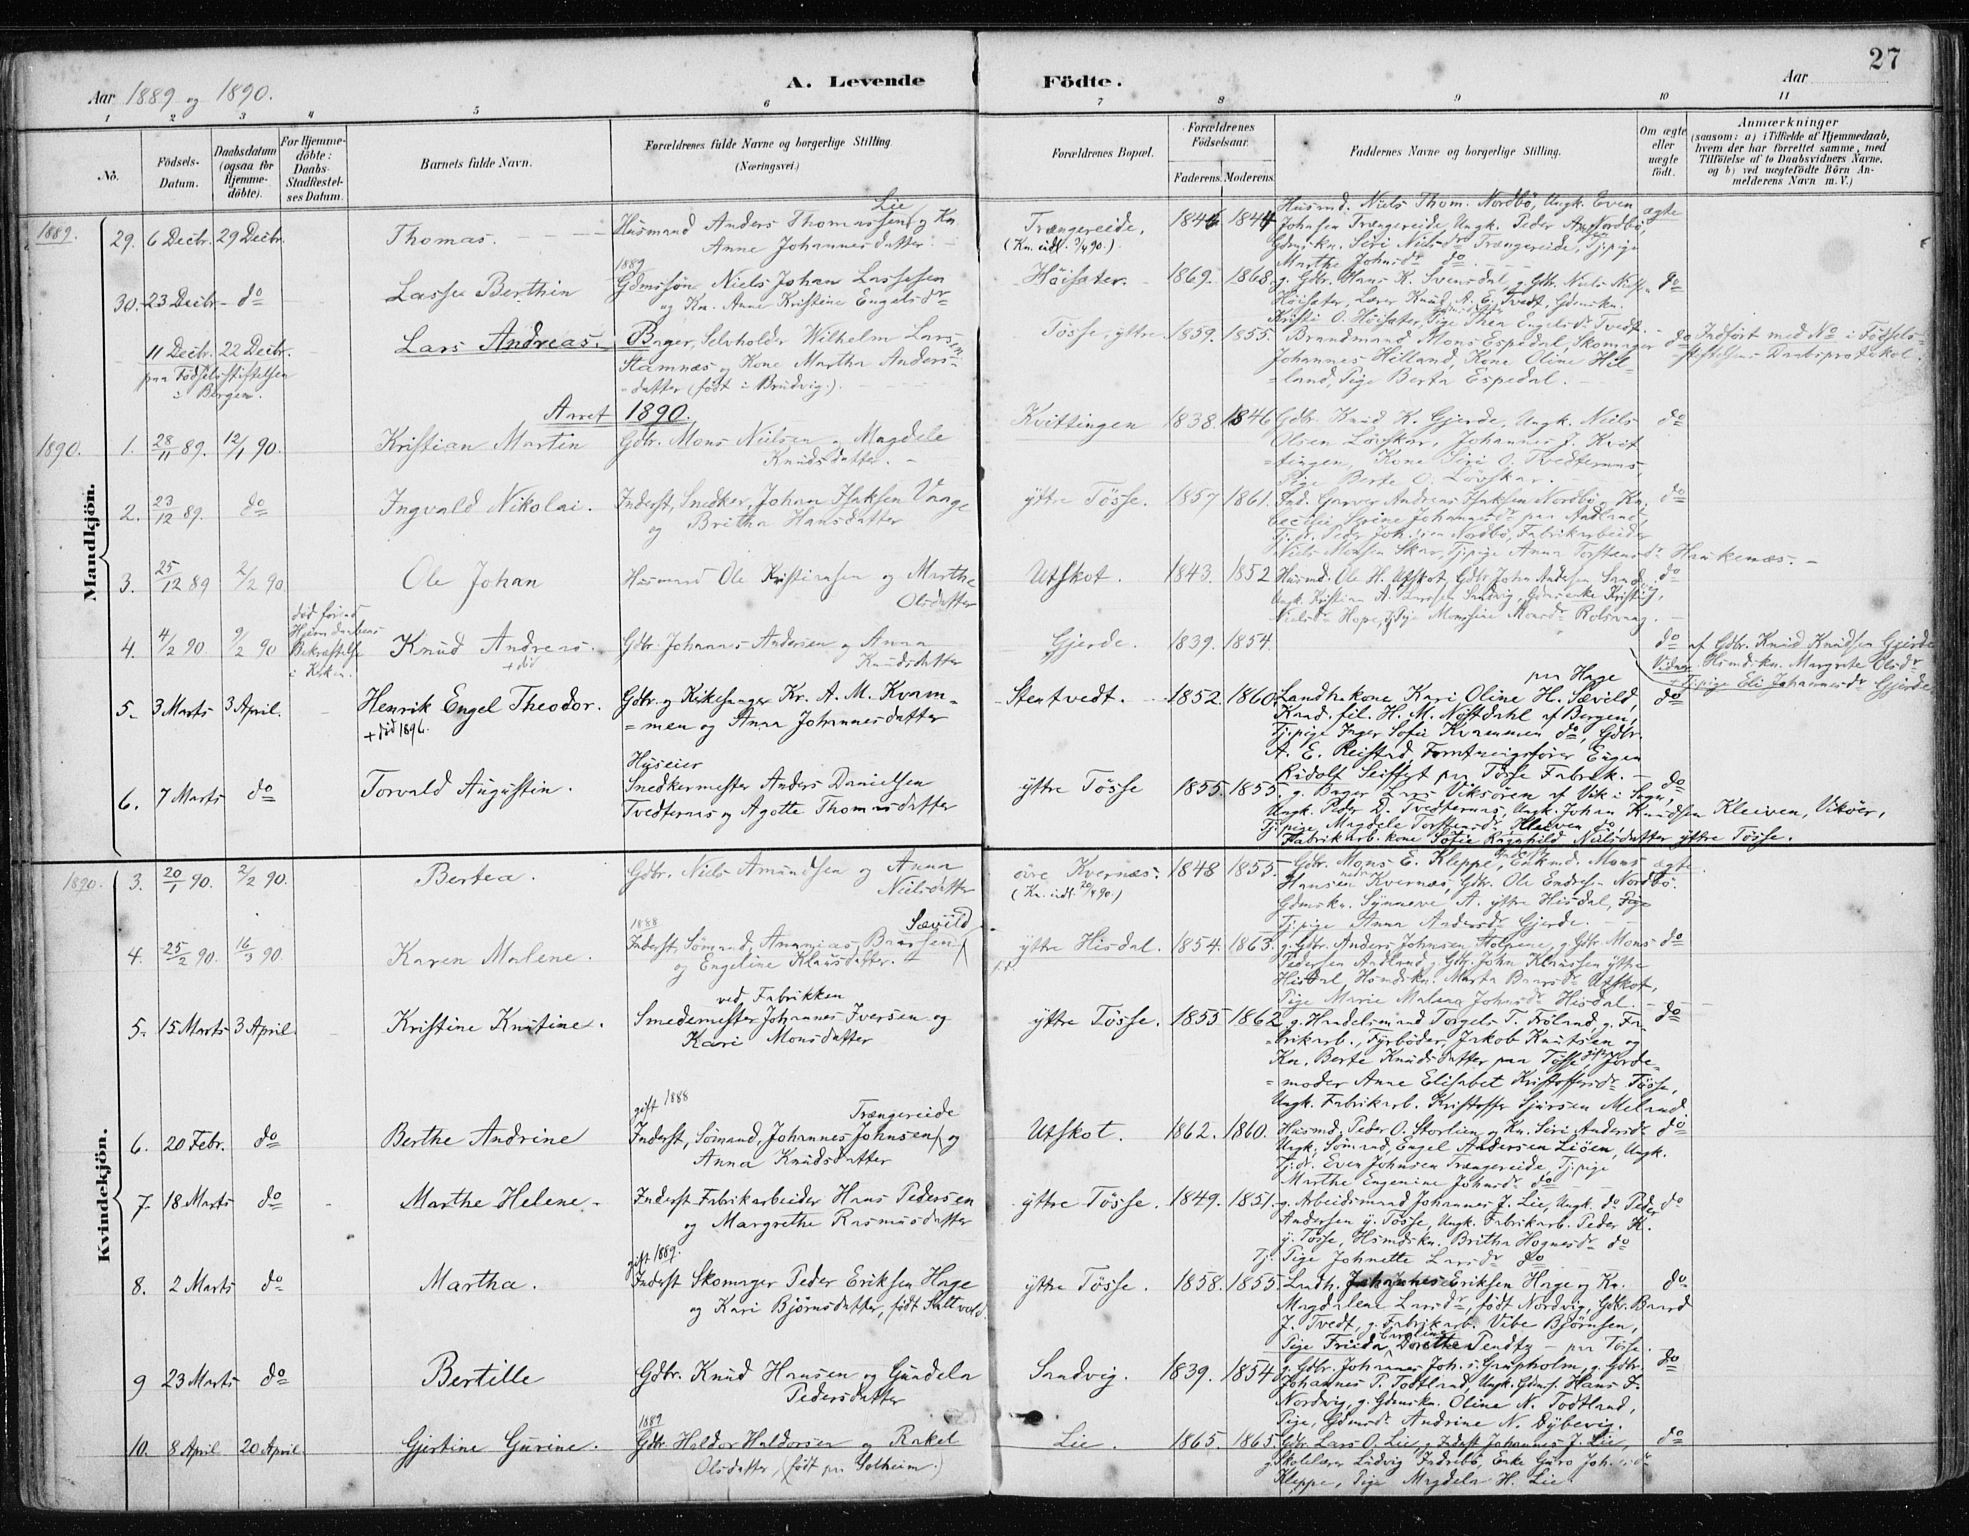 27
Aar 1889 og 1890.
A. Levende Födte.
Aar
1 2 3 4 5 6 7 8 9 10 11
No.
Födsels-Datum.
Daabsdatum (ogsaa for Hjemme-döbte).
For Hjemme-döbte: Daabs-Stadfæstel-ses Datum.
Barnets fulde Navn.
Forældrenes fulde Navne og borgerlige Stilling. (Næringsvei.)
Forældrenes Bopæl.
Forældrenes Födselsaar.
Faderens. Moderens.
Faddernes Navne og borgerlige Stilling.
Om ægte eller uægte födt.
Anmærkninger
(saasom: a) i Tilfælde af Hjemmedaab, hvem der har forrettet samme, med Tilföielse af to Daabsvidners Navne, og b) ved uægtefödte Börn An-melderens Navn m. V.)
Mandkjön.
1889.
29. 6 Decbr. 29 Decbr. Thomas.
Husmand Anders Thomassen Lie og Kn.
Anne Johannesdatter
Trængereide, 1844
Husmd. Niels Thom. Nordbö, Ungk. Even
Johnsen Trængereide, Ungk. Peder A. Nordbö,
Gdmskn. Siri Nielsdr Trængereide, Tj.pige
Marthe Johnsdr do
ægte
30. 23 Decbr. do Lasse Berthin
1889
Gdmssön Niels Johan Lassesen
og Kn. Anne Kristine Engelsdr
Höisater. 1869. 1868.
g. Gdbr. Hans K. Svensdal, g. Gdbr. Niels Niels.
Höisater, Lærer Knud A. E. Tvedt, Gdmskn.
Kristi O. Höisater, Pige Thea Engelsdr Tvedt.
do
11 Decbr. 22 Decbr.
paa Födselsstiftelsen
i Bergen.
Lars Andreas.
Bager, Selvholder Wilhelm Larsen
Stamnæs og Kone Martha Anders-
datter (födt i Brudvig.)
Tösse, yttre 1859. 1855.
Brandmand Mons Espedal, Skomager
Johannes Hilland, Kone Oline Hil-
=land, Pige Berta Espedal.
do Indfört med No i Födsels-
stiftelsens Daabsprotokol.
Aaret 1890.
1890.
1. 28/11 89. 12/1 90. Kristian Martin
Gdbr. Mons Nielsen og Magdele
Knudsdatter.
Kvittingen 1838. 1846
Gdbr. Knud K. Gjerde, Ungk. Niels
Olsen Lövskar, Johannes J. Kvit
=tingen, Kone Siri O. Tvedternæs,
Pige Berte O. Lövskar.
do
2. 23/12 89. do Ingvald Nikolai.
Inderst, Snedker, Johan Isaksen Vaage
og Britha Hansdatter
yttre Tösse. 1857 1861.
Ind. Garver Andreas Isaksen Nordbö, Kn.
Tj.dr. Peder Joh.sen Nordbö, Fabrikarbeider
Niels Monsen Skar, Tj.pige Anna Torstensdr Haukenæs.
do
3. 25/12 89 2/2 90. Ole Johan
Husmand Ole Kristiansen og Marthe
Olsdatter
Utskot. 1843. 1852
Husmd. Ole H. Utskot, Gdbr. John Andersen Sandvig,
Ungk. Kristian A. Larssen Sandvig, Gdmsenke Kristi
Nielsdr Hope, Pige Monssine Monsdr Rolsvaag.
do
4. 4/2 90 9/2 90
död förend
Hjemdaabens
Bekræftelse
i Kirken.
Knud Andreas.
+ död
Gdbr. Johannes Andersen og Anna
Knudsdatter
Gjerde. 1839. 1854.
do af Gdbr. Knud Knudsen Gjerde
Vidner: Hsmdskn. Margrete Olsdr
+ Tj.pige Eli Johannesdr Gjerde
5. 3 Marts 3 April. Henrik Engel Theodor.
+ död 1896.
Gdbr. og Kirkesanger Kr. A. M. Kvam-
=men og Anna Johannesdatter
Stentvedt. 1852. 1860.
paa Hage
Landh.kone Kari Oline H. Sævild,
Kand. fil. H. M. Nöstdahl af Bergen,
Tj.pige Inger Sofie Kvammen do, Gdbr.
A. E. Reistad, Forretningsförer Eugen
Ridolf Seiffyt paa Tösse Fabrik.
do
6. 7 Marts do Torvald Augustin.
Huseier
Snedkermester Anders Danielsen
Tvedternæs og Agotte Thomasdatter
yttre Tösse 1855. 1855.
g. Bager Lars Viksören af Vik i Sogn,
Ungk. Peder D. Tvedternæs, Ungk. Johan Knudsen Kleiven, Viköer,
Tj.pige Magdele Torstensdr Kleiven do,
Fabrikarb. kone Sofie Ragnhild Nielsdatter yttre Tösse.
do
Kvindekjön.
1890.
3. 20/1 90. 2/2 90. Bertea.
Gdbr. Niels Amundsen og Anna
Nielsdatter
övre Kvernæs. 1848 1855.
Gdbr. Mons E. Kleppe, Enkmd. Mons
Hansen nedre Kvernæs, Gdbr. Ole Endresen Nordbö.
Gdmskn. Synneve A. yttre Hisdal,
Tj.pige Anna Andersdr Gjerde.
ægte
4. 25/2 90. 16/3 90. Karen Malene.
1888
Inderst, Sömand, Ananias Baarsen Sævild
og Engeline Klausdatter.
yttre Hisdal. 1854. 1863.
g. Gdbr. Anders Johnsen Stolpene, g. Gdbr. Mons
Pedersen Aadland, g. Gdbr. John Klausen yttre
Hisdal, Hsmdskn. Marta Baarsdr Utskot,
Pige Marie Malena Johnsdr Hisdal.
do
5. 15 Marts 3 April Kristine Knutine.
ved Fabrikken
Smedemester Johannes Iversen og
Kari Monsdatter
yttre Tösse. 1855. 1862
g. Handelsmand Torgels T. Fröland, g. Fa-
=brikarb., Fyrböder, Jakob Knutsen og
Kn. Berte Knudsdatter paa Tösse, Jorde-
=moder Anne Elisabet Kristoffersdr Tösse,
Ungk. Fabrikarb. Kristoffer Sjursen Meland.
do
6. 20 Febr. do Berthe Andrine
gift 1888
Inderst, Sömand, Johannes Johnsen Trængereide og
Anna Knudsdatter
Utskot. 1862. 1860.
Husmd. Peder O. Storlien og Kn. Siri Andersdr
Ungk. Sömand, Engel Andersen Liöen, Ungk.
Tj.dr. Even Johnsen Trængereide, Tj.pige
Marthe Engenine Johnsdr do
do
7. 18 Marts do Marthe Helene.
Inderst Fabrikarbeider Hans Pedersen
og Margrethe Rasmusdatter
yttre Tösse. 1849. 1851.
g. Arbeidsmand Johannes J. Lie, Ungk. do Peder
Andersen y. Tösse, Ungk. Fabrikarb. Peder K.
y. Tösse, Hsmdskn. Britha Hognesdr do
Tj. Pige Johnette Larsdr do
do
8. 2 Marts do Martha.
gift 1889.
Inderst Skomager Peder Eriksen Hage
og Kari Björnsdatter, födt Saltvold.
yttre Tösse. 1858. 1855
Landh. Johannes Eriksen Hage og Kn.
Magdalene Larsdr, födt Nordvig, Gdbr. Baard
J. Tvedt, g. Fabrikarb. Vibe Björnsen,
Pige Frieda Caroline Dorothea Tendtz — paa Tösse.
do
9 23 Marts do Bertille
Gdbr. Knud Hansen og Gundela
Pedersdatter
Sandvig. 1839. 1854
g. Gdbr. Johannes Joh.s. Grupholm, g. Gdbr.
Johannes P. Todtland, Ungk. Gdms. Hans J.
Nordvig, g. Gdmskn. Oline N. Todtland,
Pige, Gdmsdr Andrine N. Dybevig.
do
10. 8 April 20 April Gjertine Gurine.
1889
Gdbr Haldor Haldorsen og Rakel
Olsdatter, (födt paa Solheim.)
Lie. 1865. 1865.
Gdbr. Lars O. Lie, g. Inderst Johannes J. Lie,
g. Skolelærer Ludvig Indrebö, Enke Guro Joh.
Kleppe, Pige Magdela H. Lie.
do